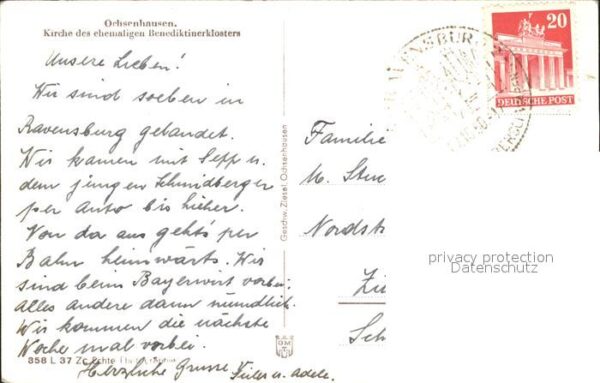 Ochsenhausen.
Kirche des ehemaligen Benediktinerklosters
Unsere Lieben!
Wir sind soeben in
Ravensburg gelandet.
Wir kamen mit Sepp u.
dem jungen Schmidberger
per Auto bis hieher.
Von da aus geht's per
Bahn heimwärts. Wir
sind beim Bayerwirt vorbei.
Alles andere dann mündlich.
Wir kommen die nächste
Woche mal vorbei.
358 L 37 Zc. Echte
Herzliche Grüsse
u. Adele.
Geschw. Ziesel, Ochsenhausen
RAVENSBURG
20
DEUTSCHE POST
Familie
M.
Nordst
privacy protection
Datenschutz
Zü
Sch